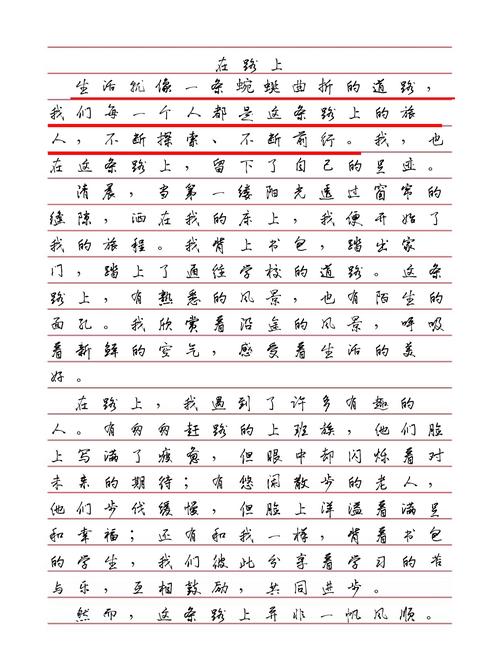 在路上
生活就像一条蜿蜒曲折的道路，
我们每一个人都是这条路上的旅
人，不断探索、不断前行。我，也
在这条路上，留下了自己的足迹。
清晨，当第一缕阳光透过窗帘的
缝隙，洒在我的床上，我便开始了
我的旅程。我背上书包，踏出家
门，踏上了通往学校的道路。这条
路上，有熟悉的风景，也有陌生的
面孔。我欣赏着沿途的风景，呼吸
着新鲜的空气，感受着生活的美
好。
在路上，我遇到了许多有趣的
人。有匆匆赶路的上班族，他们脸
上写满了疲惫，但眼中却闪烁着对
未来的期待；有悠闲散步的老人，
他们步伐缓慢，但脸上洋溢着满足
和幸福；还有和我一样，背着书包
的学生，我们彼此分享着学习的苦
与乐，互相鼓励，共同进步。
然而，这条路上并非一帆风顺。